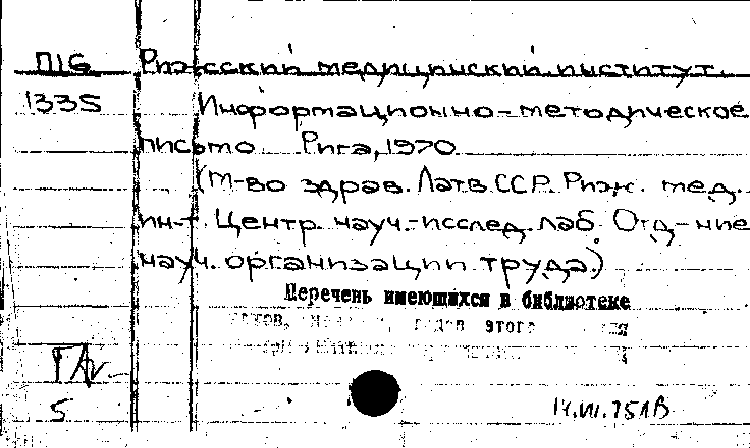 П16 Рижский медицинский институт.
1335 Информационно-методическое
письмо Рига, 1970
(М-во здрав. Латв ССР. Риж. мед.
ин-т. Центр. науч.-исслед. лаб. Отд-ние
науч. организации труда.)
Перечень имеющихся в библиотеке
этого
5
14.VII.75